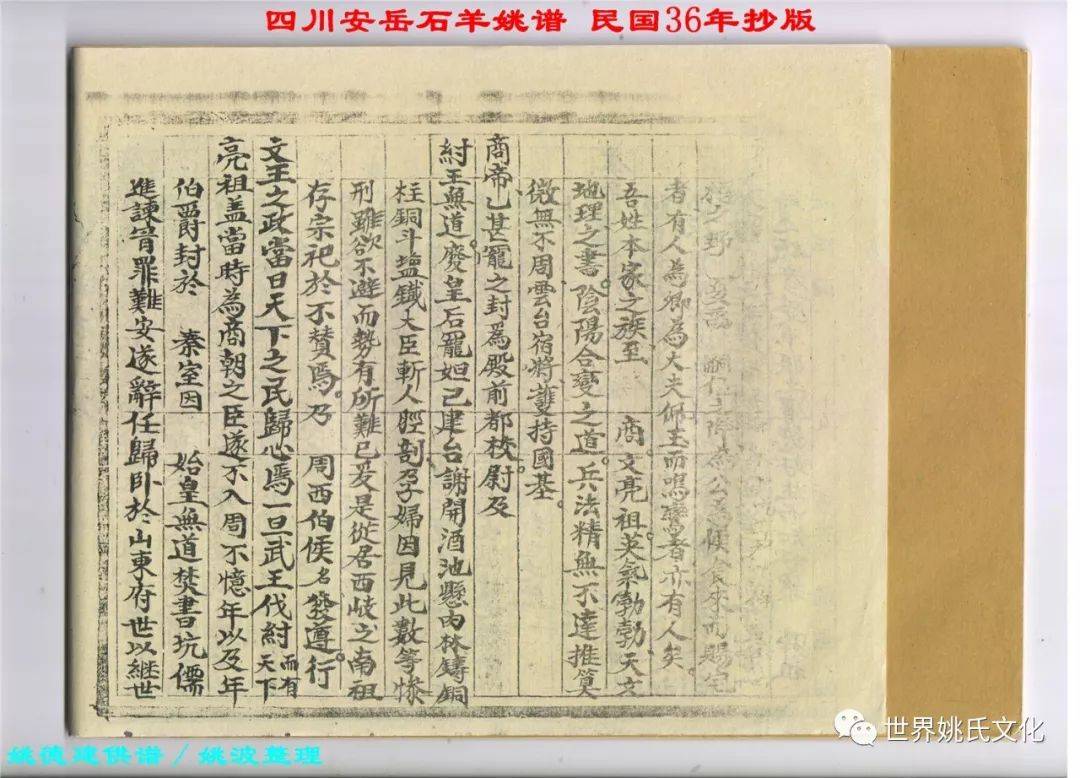 四川安岳石羊姚谱 民国36年抄版
之野
者有人為卿為大夫佩玉而鳴鸞者亦有人矣。
吾姓本家之族至 商文亮祖英氣勃勃天文
地理之書。陰陽合變之道。兵法精無不達推算
微無不周雲台宿將護持國基。
商帝乙甚寵之封爲殿前都校尉及
紂王無道廢皇后寵妲己建台謝開酒池懸肉林鑄銅
柱銅斗塩鐵大臣斬人脛剖孕婦因見此數等慘
刑雖欲不避而勢有所難已爰是從居西岐之南祖
存宗祀於不賛焉。乃 周西伯侯名發遵行。
文王之政當日天下之民歸心焉一旦武王伐紂而有天下
亮祖盖當時為商朝之臣遂不入周不憶年以及年
伯爵封於 秦室因 始皇無道焚書坑儒
進諫罪難安遂辭任歸卧於山東府世以継世
姚德建供谱 / 姚波整理
世界姚氏文化